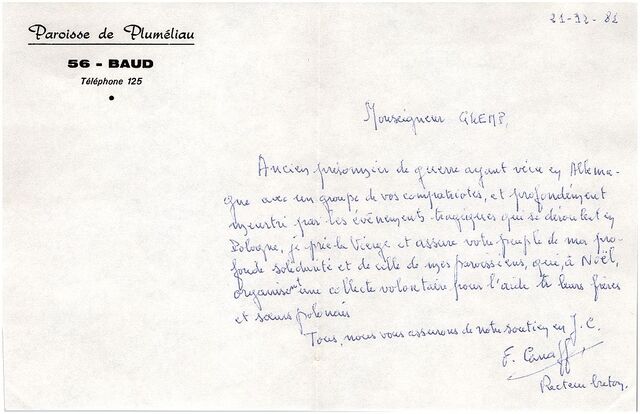 Paroisse de Pluméliau
56 - BAUD
Téléphone 125
21-12-82
Monseigneur GLEMP,
Ancien prisonnier de guerre ayant vécu en Allema-
gne avec un groupe de vos compatriotes, et profondément
meurtri par les évènements tragiques qui se déroulent en
Pologne, je prie la Vierge et assure votre peuple de ma pro-
fonde solidarité et de celle de mes paroissiens, qui à Noël,
organisent une collecte volontaire pour l'aide à leurs frères
et sœurs polonais
Tous, nous vous assurons de notre soutien en J. C.
F. Canaff
Recteur breton.